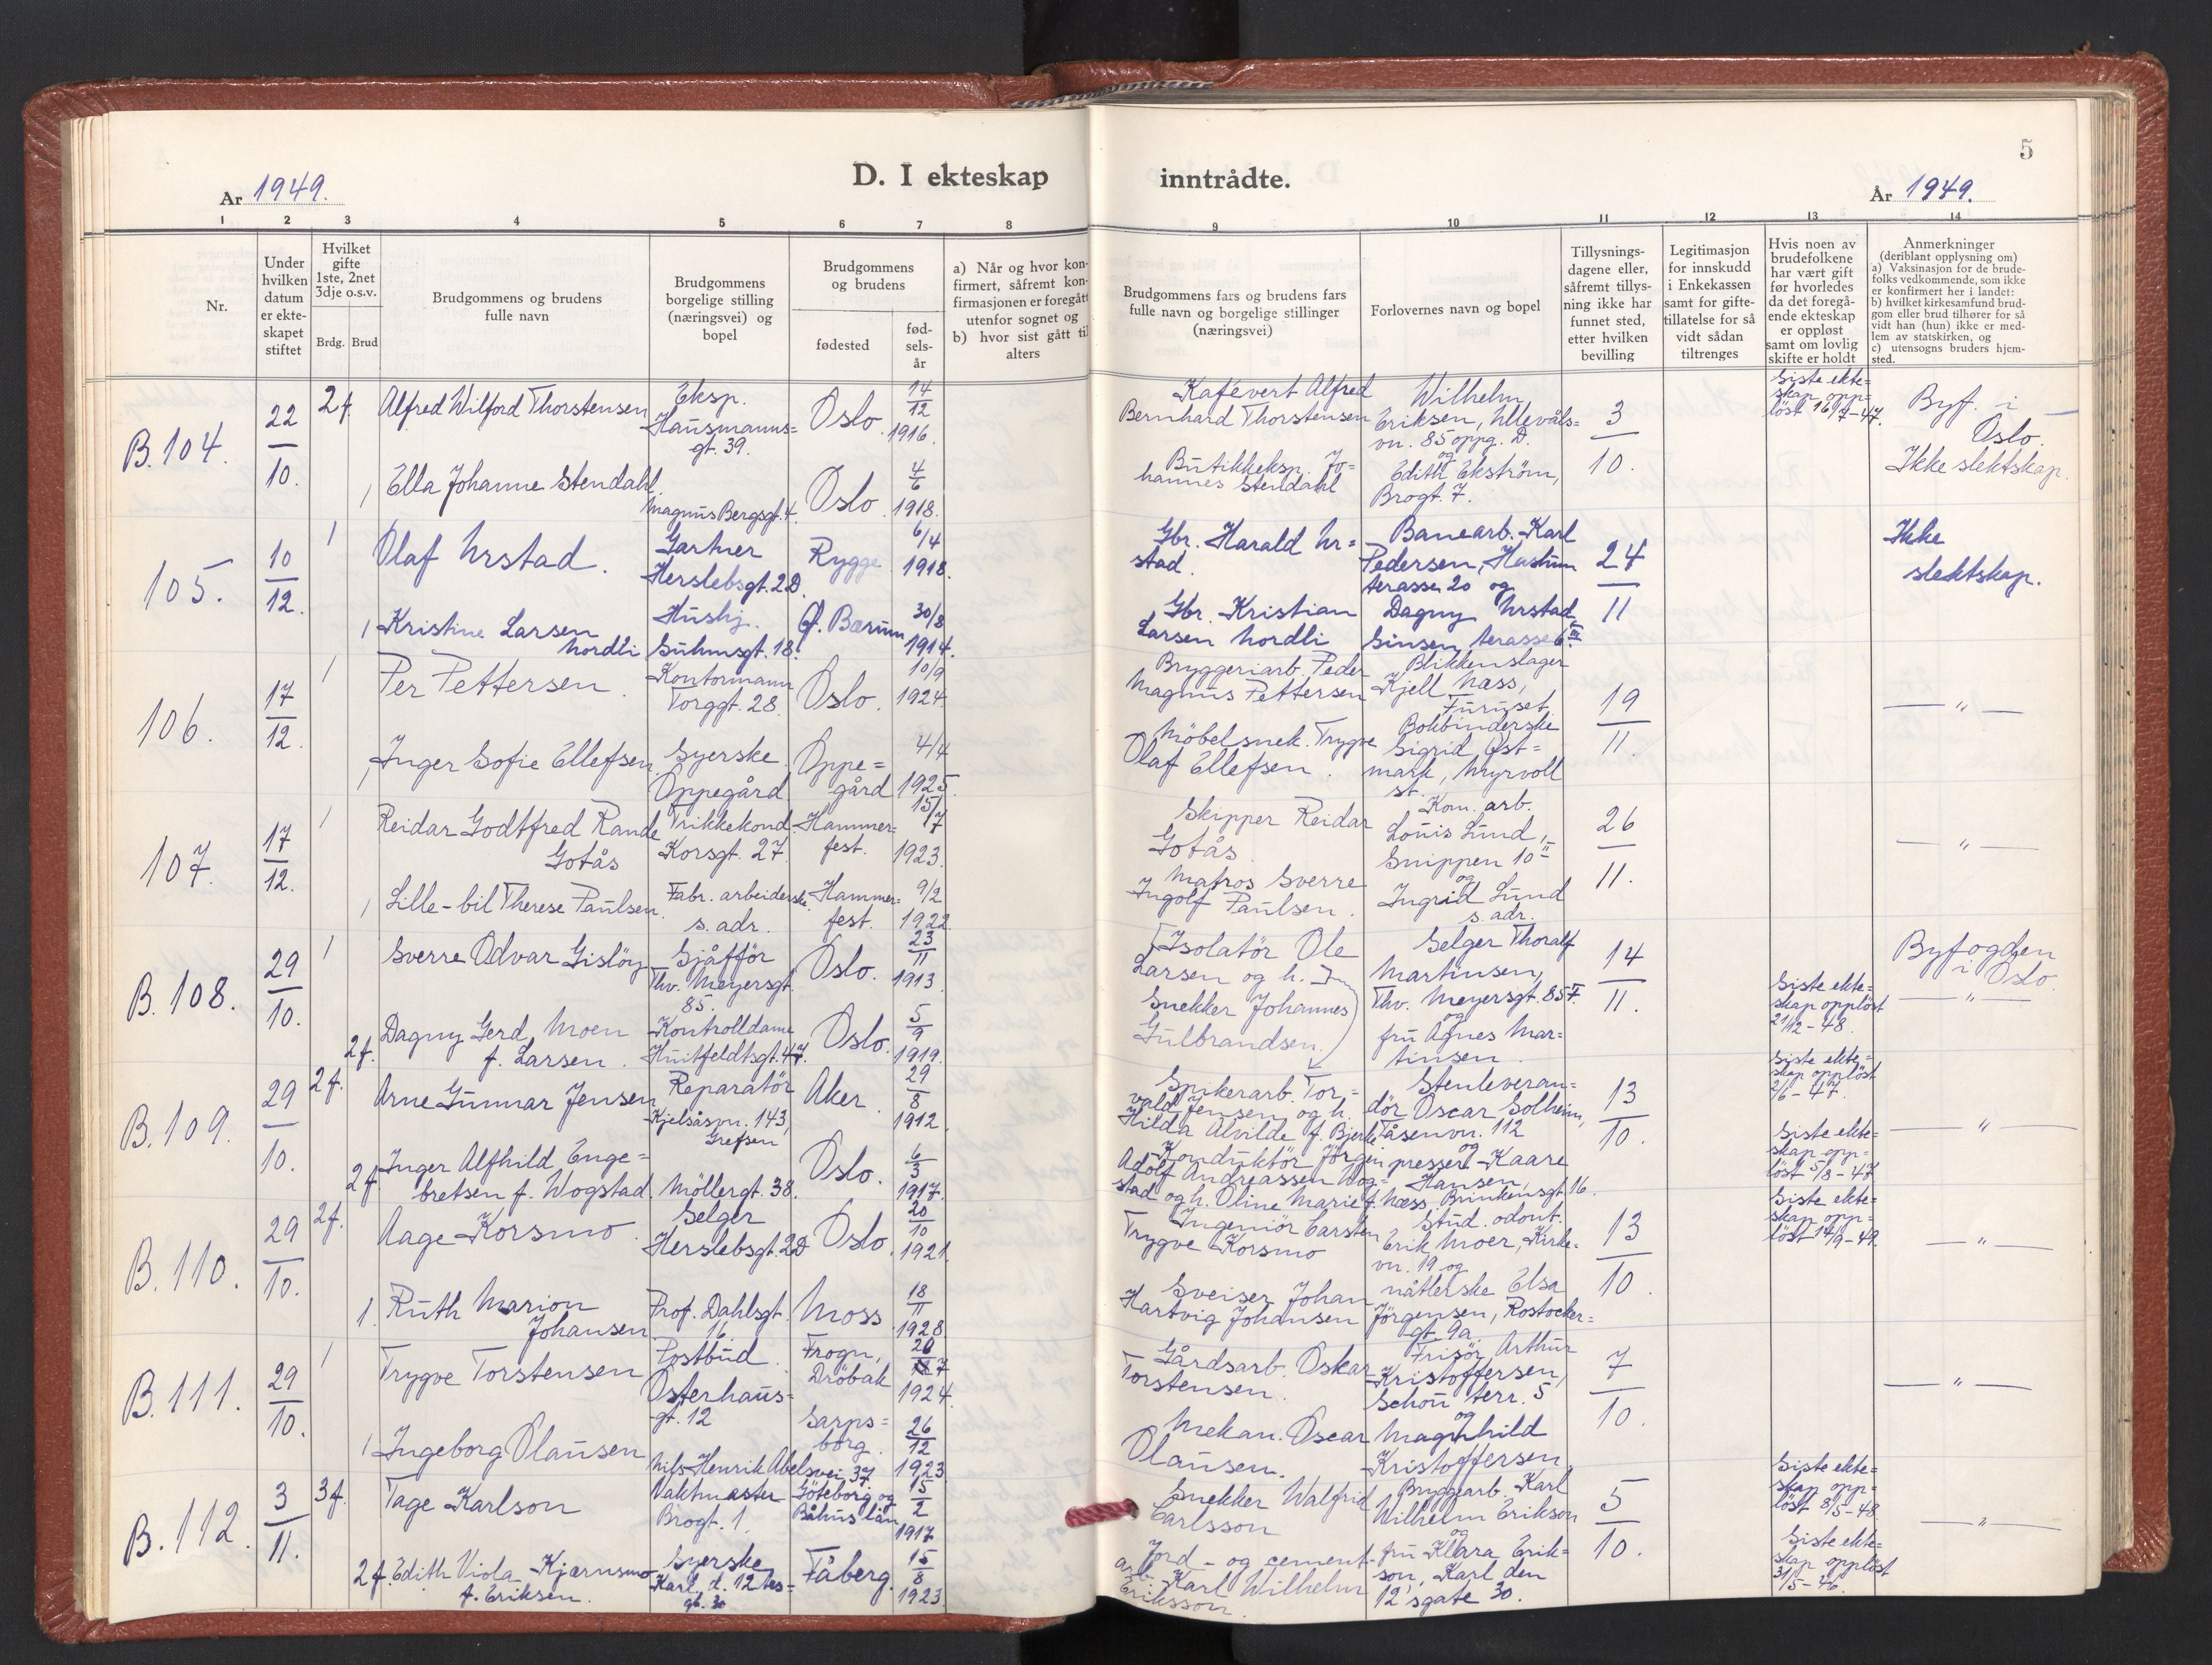 D. I ekteskap inntrådte.
5
År 1949.
År 1949.
1 2 3 4 5 6 7 8 9 10 11 12 13 14
Nr.
Under
hvilken
datum
er ekte-
skapet
stiftet
Hvilket
gifte
1ste, 2net
3dje o.s.v.
Brdg. Brud
Brudgommens og brudens
fulle navn
Brudgommens
borgelige stilling
(næringsvei) og
bopel
Brudgommens
og brudens
fødested
fød-
sels-
år
a) Når og hvor kon-
firmert, såfremt kon-
firmasjonen er foregått
utenfor sognet og
b) hvor sist gått til
alters
Brudgommens fars og brudens fars
fulle navn og borgelige stillinger
(næringsvei)
Forlovernes navn og bopel
Tillysnings-
dagene eller,
såfremt tillys-
ning ikke har
funnet sted,
etter hvilken
bevilling
Legitimasjon
for innskudd
i Enkekassen
samt for gifte-
tillatelse for så
vidt sådan
tiltrenges
Hvis noen av
brudefolkene
har vært gift
før hvorledes
da det foregå-
ende ekteskap
er oppløst
samt om lovlig
skifte er holdt
Anmerkninger
(deriblant opplysning om)
a) Vaksinasjon for de brude-
folks vedkommende, som ikke
er konfirmert her i landet:
b) hvilket kirkesamfund brud-
gom eller brud tilhører for så
vidt han (hun) ikke er med-
lem av statskirken, og
c) utensogns bruders hjem-
sted.
B. 104.
22
10.
2 f.
Alfred Wilford Thorstensen
Eksp.
Hausmanns=
gt. 39.
Oslo
14
12
1916.
1
Ella Johanne Stendahl
Magnus Bergsgt. 4.
Oslo
4
6
1918.
Kafévert Alfred
Bernhard Thorstensen
Butikkeksp. Jo=
hannes Stendahl
Wilhelm
Eriksen, Ullevåls=
vn. 85 oppg. D.
og
Edith Ekström,
Brogt. 7.
3
10.
Siste ekte=
skap opp=
löst 16/7-47.
Byf. i
Oslo.
Ikke slektskap.
105.
10
12.
1
Olaf Urstad.
Gartner
Herslebsgt. 2D.
Rygge
6/4
1918.
1
Kristine Larsen
Nordli
Hushj.
Suhmsgt. 18.
Ø. Bærum
30/8
1914.
Gbr. Harald Ur=
stad.
Gbr. Kristian
Larsen Nordli
Banearb. Karl
Pedersen, Haslum
terasse 20 og
Dagny Urstad,
Sinsen terasse 6 III.
24
11
Ikke
slektskap.
106.
17
12.
1
Per Pettersen.
Kontormann
Torggt. 28.
Oslo.
10/9
1924.
1
Inger Sofie Ellefsen
Syerske
Oppegård
Oppe=
gård
4/4
1925.
Bryggeriarb. Peder
Magnus Pettersen
Möbelsnek. Trygve
Olaf Ellefsen.
Blikkenslager
Kjell Næss,
Furuset,
Bokbinderske
Sigrid Øst=
mark, Myrvoll
st.
19
11.
— " —
107.
17
12.
1
Reidar Godtfred Rande
Gotås
Trikkekond.
Korsgt. 27
Hammer=
fest.
15/7
1923.
1
Lille-bil Therese Paulsen.
Fabr. arbeiderske
s. adr.
Hammer=
fest.
9/2
1922.
Skipper Reidar
Gotås
Matros Sverre
Ingolf Paulsen.
Kom. arb.
Louis Lund,
Snippen 10 II
og
Ingrid Lund
s. adr.
26
11.
— " —
B. 108.
29
10.
1
Sverre Odvar Gislöy
Sjåfför
Thv. Meyersgt.
85.
Oslo.
23
11
1913.
2 f.
Dagny Gerd Moen
f. Larsen.
Kontrolldame
Huitfeldtsgt. 47.
Oslo.
5
9
1919.
Isolatör Ole
Larsen og h.
Snekker Johannes
Gulbrandsen.
Selger Thoralf
Martinsen,
Thv. Meyersgt. 85 V.
og
fru Agnes Mar=
tinsen.
14
11.
Siste ekte=
skap opplöst
21/12-48.
Byfogden
i Oslo.
— " —
B. 109.
29
10.
2 f.
Arne Gunnar Jensen
Reparatör
Kjelsåsvn. 143,
Grefsen
Aker.
29
8
1912.
2 f.
Inger Alfhild Enge=
bretsen f. Wogstad.
Möllergt. 38.
Oslo.
6
3
1917.
Spikerarb. Tor=
vald Jensen og h.
Hilda Alvilde f. Bjerke
Konduktör Jörgen
Adolf Andreassen Wog=
stad og h. Oline Marie f. Næss.
Stenleveran=
dör Oscar Solheim,
Tåsenvn. 112
og
presser Kaare
Hansen,
Brinkensgt. 16.
13
10.
Siste ekte=
skap opplöst
2/6-47.
Siste ekte=
skap opp=
löst 5/8-47
— " —
B. 110.
29
10.
2 f.
Aage Korsmo.
Selger
Herslebsgt. 2D
Oslo.
20
10
1921.
1.
Ruth Marion
Johansen
Prof. Dahlsgt.
16.
Moss
18
11
1928
Ingeniör Carsten
Trygve Korsmo
Sveiser Johan
Hartvig Johansen
Stud. odont.
Erik Moer, Kirke=
vn. 19 og
nåtlerske Elsa
Jörgensen, Rostocker=
gt. 9a.
13
10.
Siste ekte=
skap opp=
löst 14/9-49.
— " —
B. 111.
29
10.
1
Trygve Torstensen
Postbud.
Osterhaus=
gt. 12
Frogn,
Dröbak
20
7
1924.
1
Ingeborg Olausen
Nils Henrik Abelsvei 37
Sarps=
borg.
26
12
1923
Gårdsarb. Oskar
Torstensen.
Mekan. Oscar
Olausen.
Frisör Arthur
Kristoffersen,
Schou terr. 5
og
Magnhild
Kristoffersen.
7
10.
— " —
B. 112.
3
11.
3 f.
Tage Karlson
Vaktmester
Brogt. 1.
Göteborg og
Båhus län
15
2
1917
2 f.
Edith Viola Kjærnsmo
f. Eriksen.
Syerske
Karl d. 12tes=
gt. 30
Fåberg.
15
8
1923
Snekker Walfrid
Carlsson
Jord- og cement-
arb. Karl Wilhelm
Eriksson.
Bryggarb. Karl
Wilhelm Erikson
og
fru Klara Erik=
son, Karl den
12'sgate 30.
5
10.
Siste ekte=
skap opp=
löst 8/5-48.
Siste ekte=
skap opplöst
31/5-46.
— " —